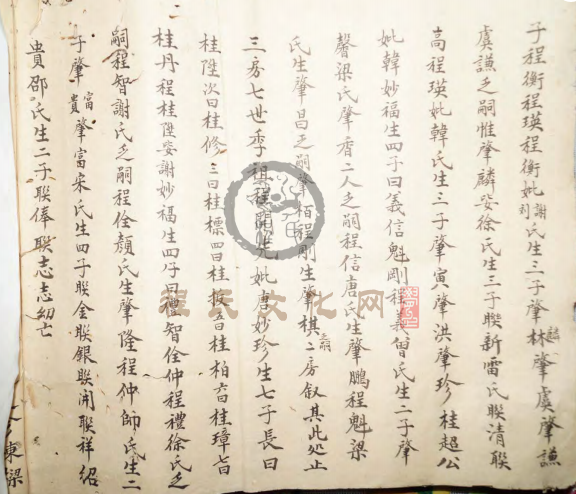 子程衡程瑛程衡妣謝刘氏生三子肇林肇虞肇謙
虞謙乏嗣惟肇麟娶徐氏生三子聯新雷氏聯清聯
高程瑛妣韓氏生三子肇寅肇洪肇珍 桂超公
妣韓妙福生四子曰義信魁剛程義曾氏生二子肇
馨梁氏肇香二人乏嗣程信唐氏生肇鵬程魁梁
氏生肇昌乏嗣肇栢程剛生肇棋二房叙其此处止
三房七世季祖程開先妣唐妙珍生七子長曰
桂陞次曰桂修三曰桂標四曰桂披五曰桂柏六曰桂璋七曰
桂丹程桂陞娶謝妙福生四子曰禮智佺仲程禮徐氏乏
嗣程智謝氏乏嗣程佺顏氏生肇隆程仲師氏生二
子肇富肇貴肇富宋氏生四子聯金聯銀聯開聯祥紹
貴邵氏生二子聯俸聯志志幼亡
東梁
程氏文化网